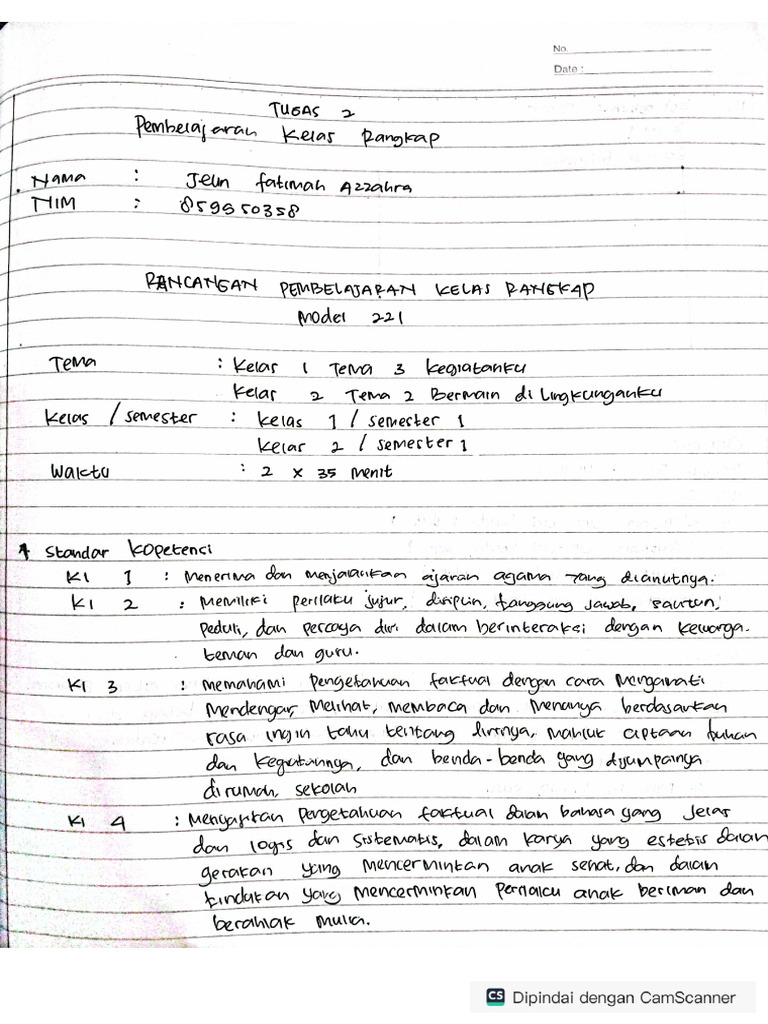 No.
Date :
TUGAS 2
Pembelajaran Kelas Rangkap
Nama : Jelin fatimah Azzahra
NIM : 859950358
RANCANGAN PEMBELAJARAN KELAS RANGKAP
Model 221
Tema : Kelas 1 Tema 3 kegiatanku
Kelas 2 Tema 2 Bermain di Lingkunganku
Kelas / semester : Kelas 1 / semester 1
Kelas 2 / semester 1
Waktu : 2 x 35 Menit
Standar Kopetensi
KI 1 : Menerima dan menjalankan ajaran agama yang dianutnya.
KI 2 : Memiliki perilaku jujur, disiplin, tanggung jawab, santun,
Peduli, dan percaya diri dalam berinteraksi dengan keluarga.
teman dan guru.
KI 3 : Memahami Pengetahuan faktual dengan cara Mengamati
Mendengar, Melihat, membaca dan Menanya berdasarkan
rasa ingin tahu tentang dirinya, mahluk ciptaan tuhan
dan kegiatannya, dan benda-benda yang dijumpainya
dirumah, sekolah
KI 4 : Menyajikan Pengetahuan faktual dalam bahasa yang jelas
dan logis dan Sistematis, dalam karya yang estetis dalam
gerakan yang Mencerminkan anak sehat, dan dalam
tindakan yang Mencerminkan Perilaku anak beriman dan
berahlak mulia.
CS Dipindai dengan CamScanner